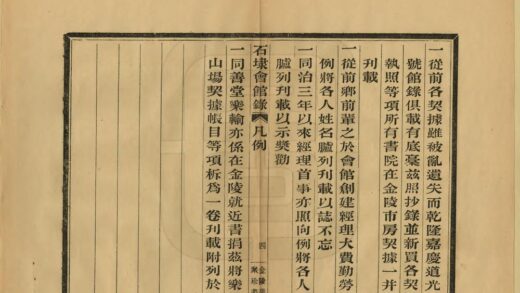 一從前各契據雖被亂遺失而乾隆嘉慶道光
號館錄俱載有底臺茲照抄錄並新買各契
執照等項所有書院在金陵市房契據一并
刊載
一從前鄉前輩之於會館創建經理大費勤勞
例將各人姓名臚列刊載以誌不忘
一同治三年以來經理首事亦照向例將各人
臚列刊載以示奬勸
石埭會館錄 凡例
四
一同善堂樂輸亦係在金陵就近書捐茲將樂
山場契據帳目等項柝為一卷刊載附列於